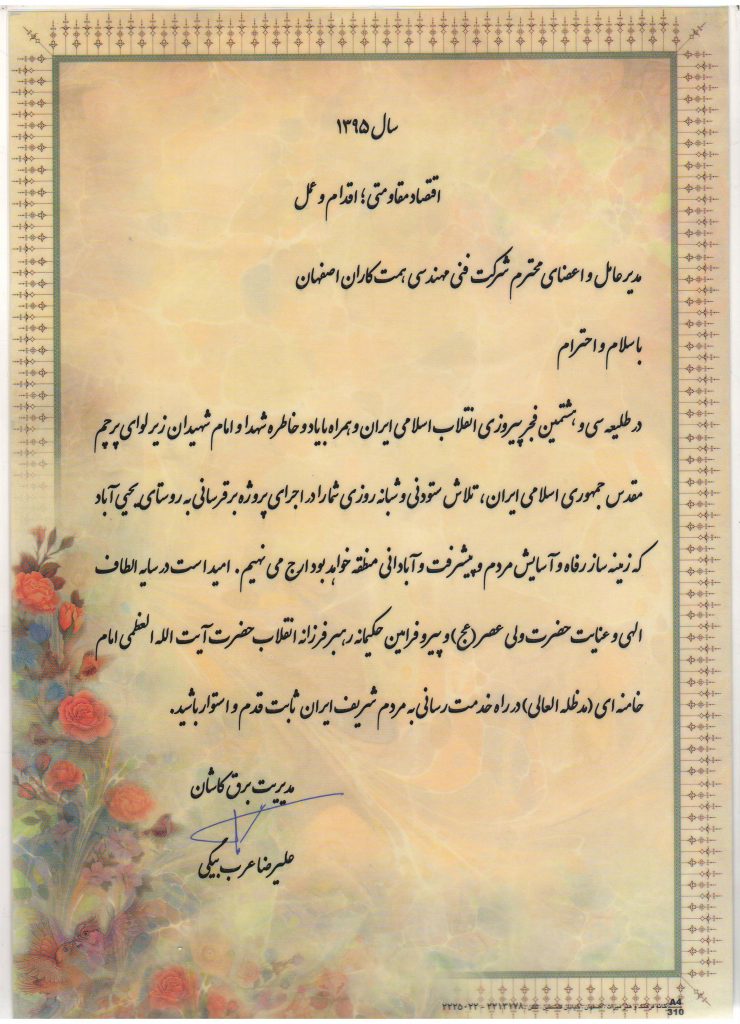 سال ۱۳۹۵
اقتصاد مقاومتی؛ اقدام و عمل
مدیرعامل و اعضای محترم شرکت فنی مهندسی همت کاران اصفهان
باسلام و احترام
در طلیعه سی و هشتمین فجر پیروزی انقلاب اسلامی ایران و همراه با یاد و خاطره شهدا و امام شهیدان زیر لوای پرچم
مقدس جمهوری اسلامی ایران، تلاش ستودنی و شبانه روزی شما را در اجرای پروژه برقرسانی به روستای یحیی آباد
که زمینه ساز رفاه و آسایش مردم و پیشرفت و آبادانی منطقه خواهد بود ارج می نهیم. امید است در سایه الطاف
الهی و عنایت حضرت ولی عصر(عج) و پیرو فرامین حکیمانه رهبر فرزانه انقلاب حضرت آیت الله العظمی امام
خامنه ای (مدظله العالی) در راه خدمت رسانی به مردم شریف ایران ثابت قدم و استوار باشید.
مدیریت برق کاشان
علیرضا عرب بیگی
A4
310
۲۲۲۵۰۲۲ - ۲۲۱۳۲۷۸